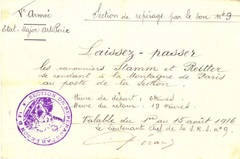 Vᵉ Armée
Section de repérage par le son Nº 9
Etat-Major Artillerie
Laissez-passer
les canonniers Stamm et Reitter
se rendant à la Montagne de Paris
au poste de la Section.
Heure de départ :
Heure de retour : 19 heures.
Valable du 1er au 15 août 1916
Le Lieutenant chef de la S.R.S. nº 9.